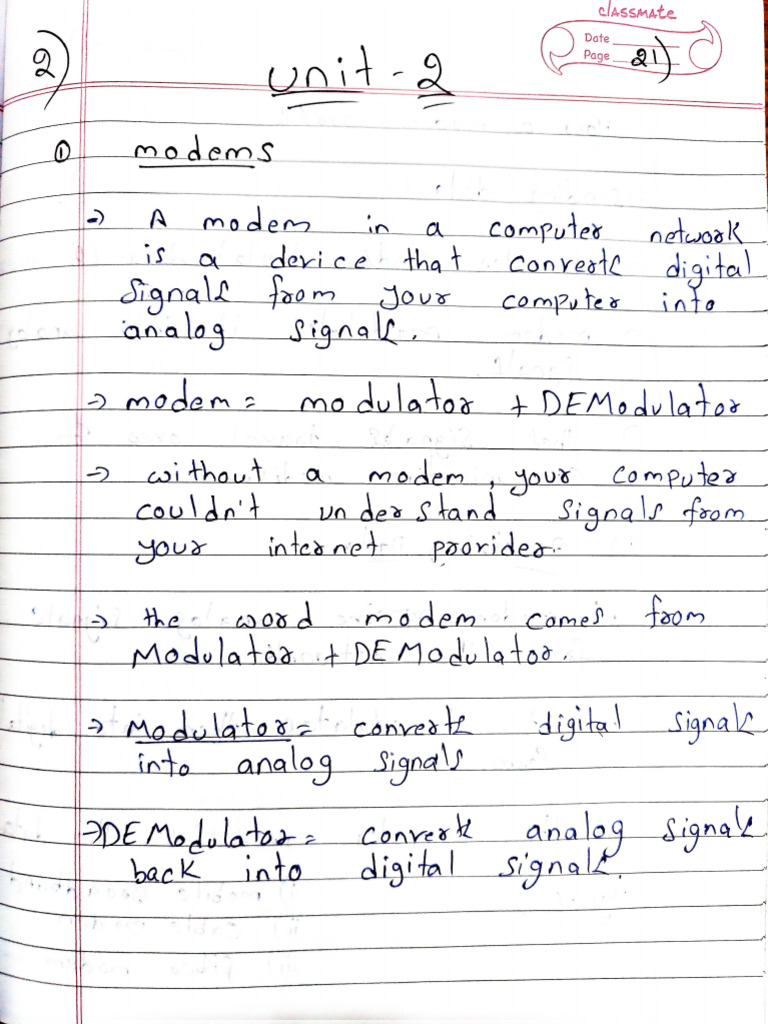 classmate
Date
Page 21)
2)
Unit - 2
① modems
→ A modem in a computer network
is a device that converts digital
signals from your computer into
analog signals.
→ modem = modulator + DEModulator
→ without a modem, your computer
couldn't understand signals from
your internet provider.
→ the word modem comes from
Modulator + DEModulator.
→ Modulator = converts digital signals
into analog signals
→ DEModulator = converts analog signals
back into digital signals.